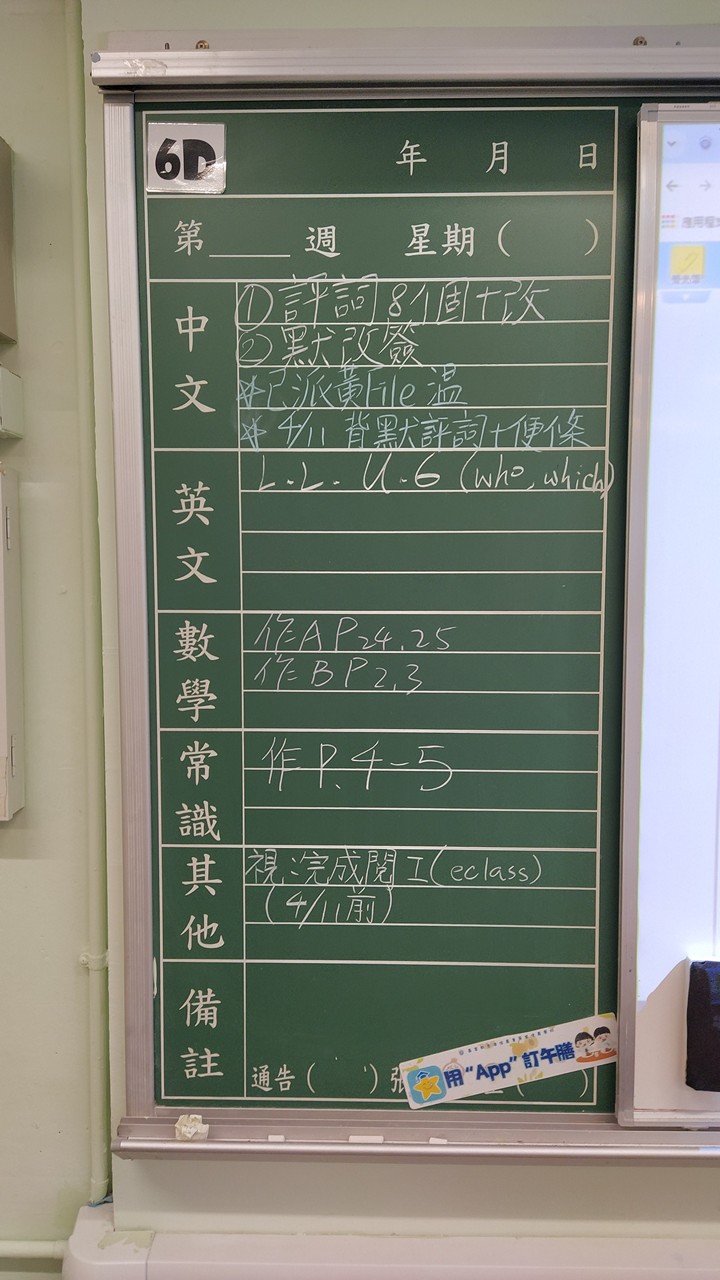 6D
年 月 日
第____週 星期( )
中文
①評詞8個+改
②默改簽
*已派黃File 溫
*4/11 背默評詞+便條
英文
L.L. U.6 (who, which)
數學
作A P24.25
作B P2.3
常識
作P.4-5
其他
視:完成閱I(eclass)
(4/11前)
備註
通告( )張
用“App”訂午膳
應用程式